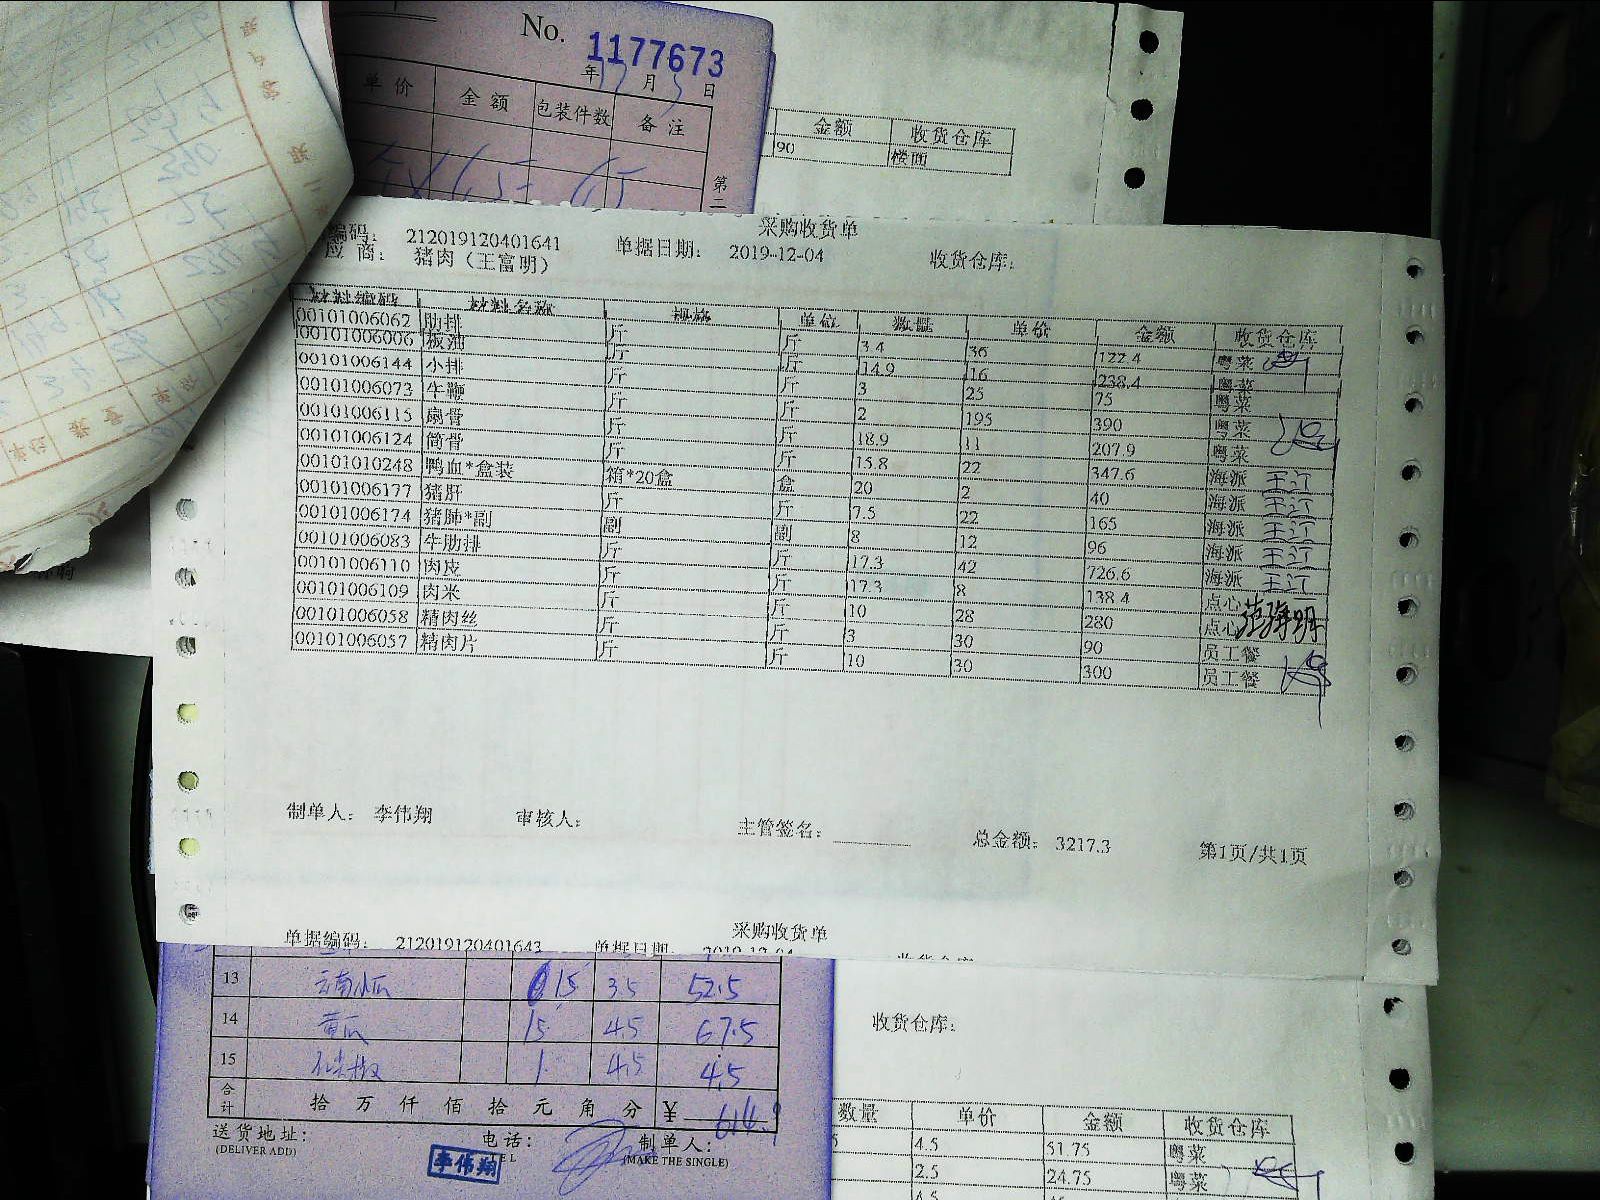 No. 1177673
年 月 日
单价 金额 包装件数 备注
第二
金额 收货仓库
90 楼面
编码: 212019120401641 单据日期: 2019-12-04
采购收货单
应 商: 猪肉（王富明） 收货仓库:
材料编码 材料名称 规格 单位 数量 单价 金额 收货仓库
00101006062 肋排 斤 斤 3.4 36 122.4 粤菜
00101006006 板油 斤 斤 14.9 16 238.4 粤菜
00101006144 小排 斤 斤 3 25 75 粤菜
00101006073 牛鞭 斤 斤 2 195 390 粤菜
00101006115 扇骨 斤 斤 18.9 11 207.9 粤菜
00101006124 筒骨 斤 斤 15.8 22 347.6 海派 王江
00101010248 鸭血*盒装 箱*20盒 盒 20 2 40 海派 王江
00101006177 猪肝 斤 斤 7.5 22 165 海派 王江
00101006174 猪肺*副 副 副 8 12 96 海派 王江
00101006083 牛肋排 斤 斤 17.3 42 726.6 海派 王江
00101006110 肉皮 斤 斤 17.3 8 138.4 点心
00101006109 肉米 斤 斤 10 28 280 点心
00101006058 精肉丝 斤 斤 3 30 90 员工餐
00101006057 精肉片 斤 斤 10 30 300 员工餐
制单人: 李伟翔 审核人: 主管签名: 总金额: 3217.3 第1页/共1页
采购收货单
单据编码: 212019120401643 单据日期: 2019-12-04
13 云南小瓜 15 3.5 52.5
14 黄瓜 15 4.5 67.5
15 1 4.5 4.5
合计 拾 万 仟 佰 拾 元 角 分 ¥ 614.9
送货地址: 电话: 制单人:
(DELIVER ADD) TEL (MAKE THE SINGLE)
李伟翔
收货仓库:
数量 单价 金额 收货仓库
4.5 51.75 粤菜
2.5 24.75 粤菜